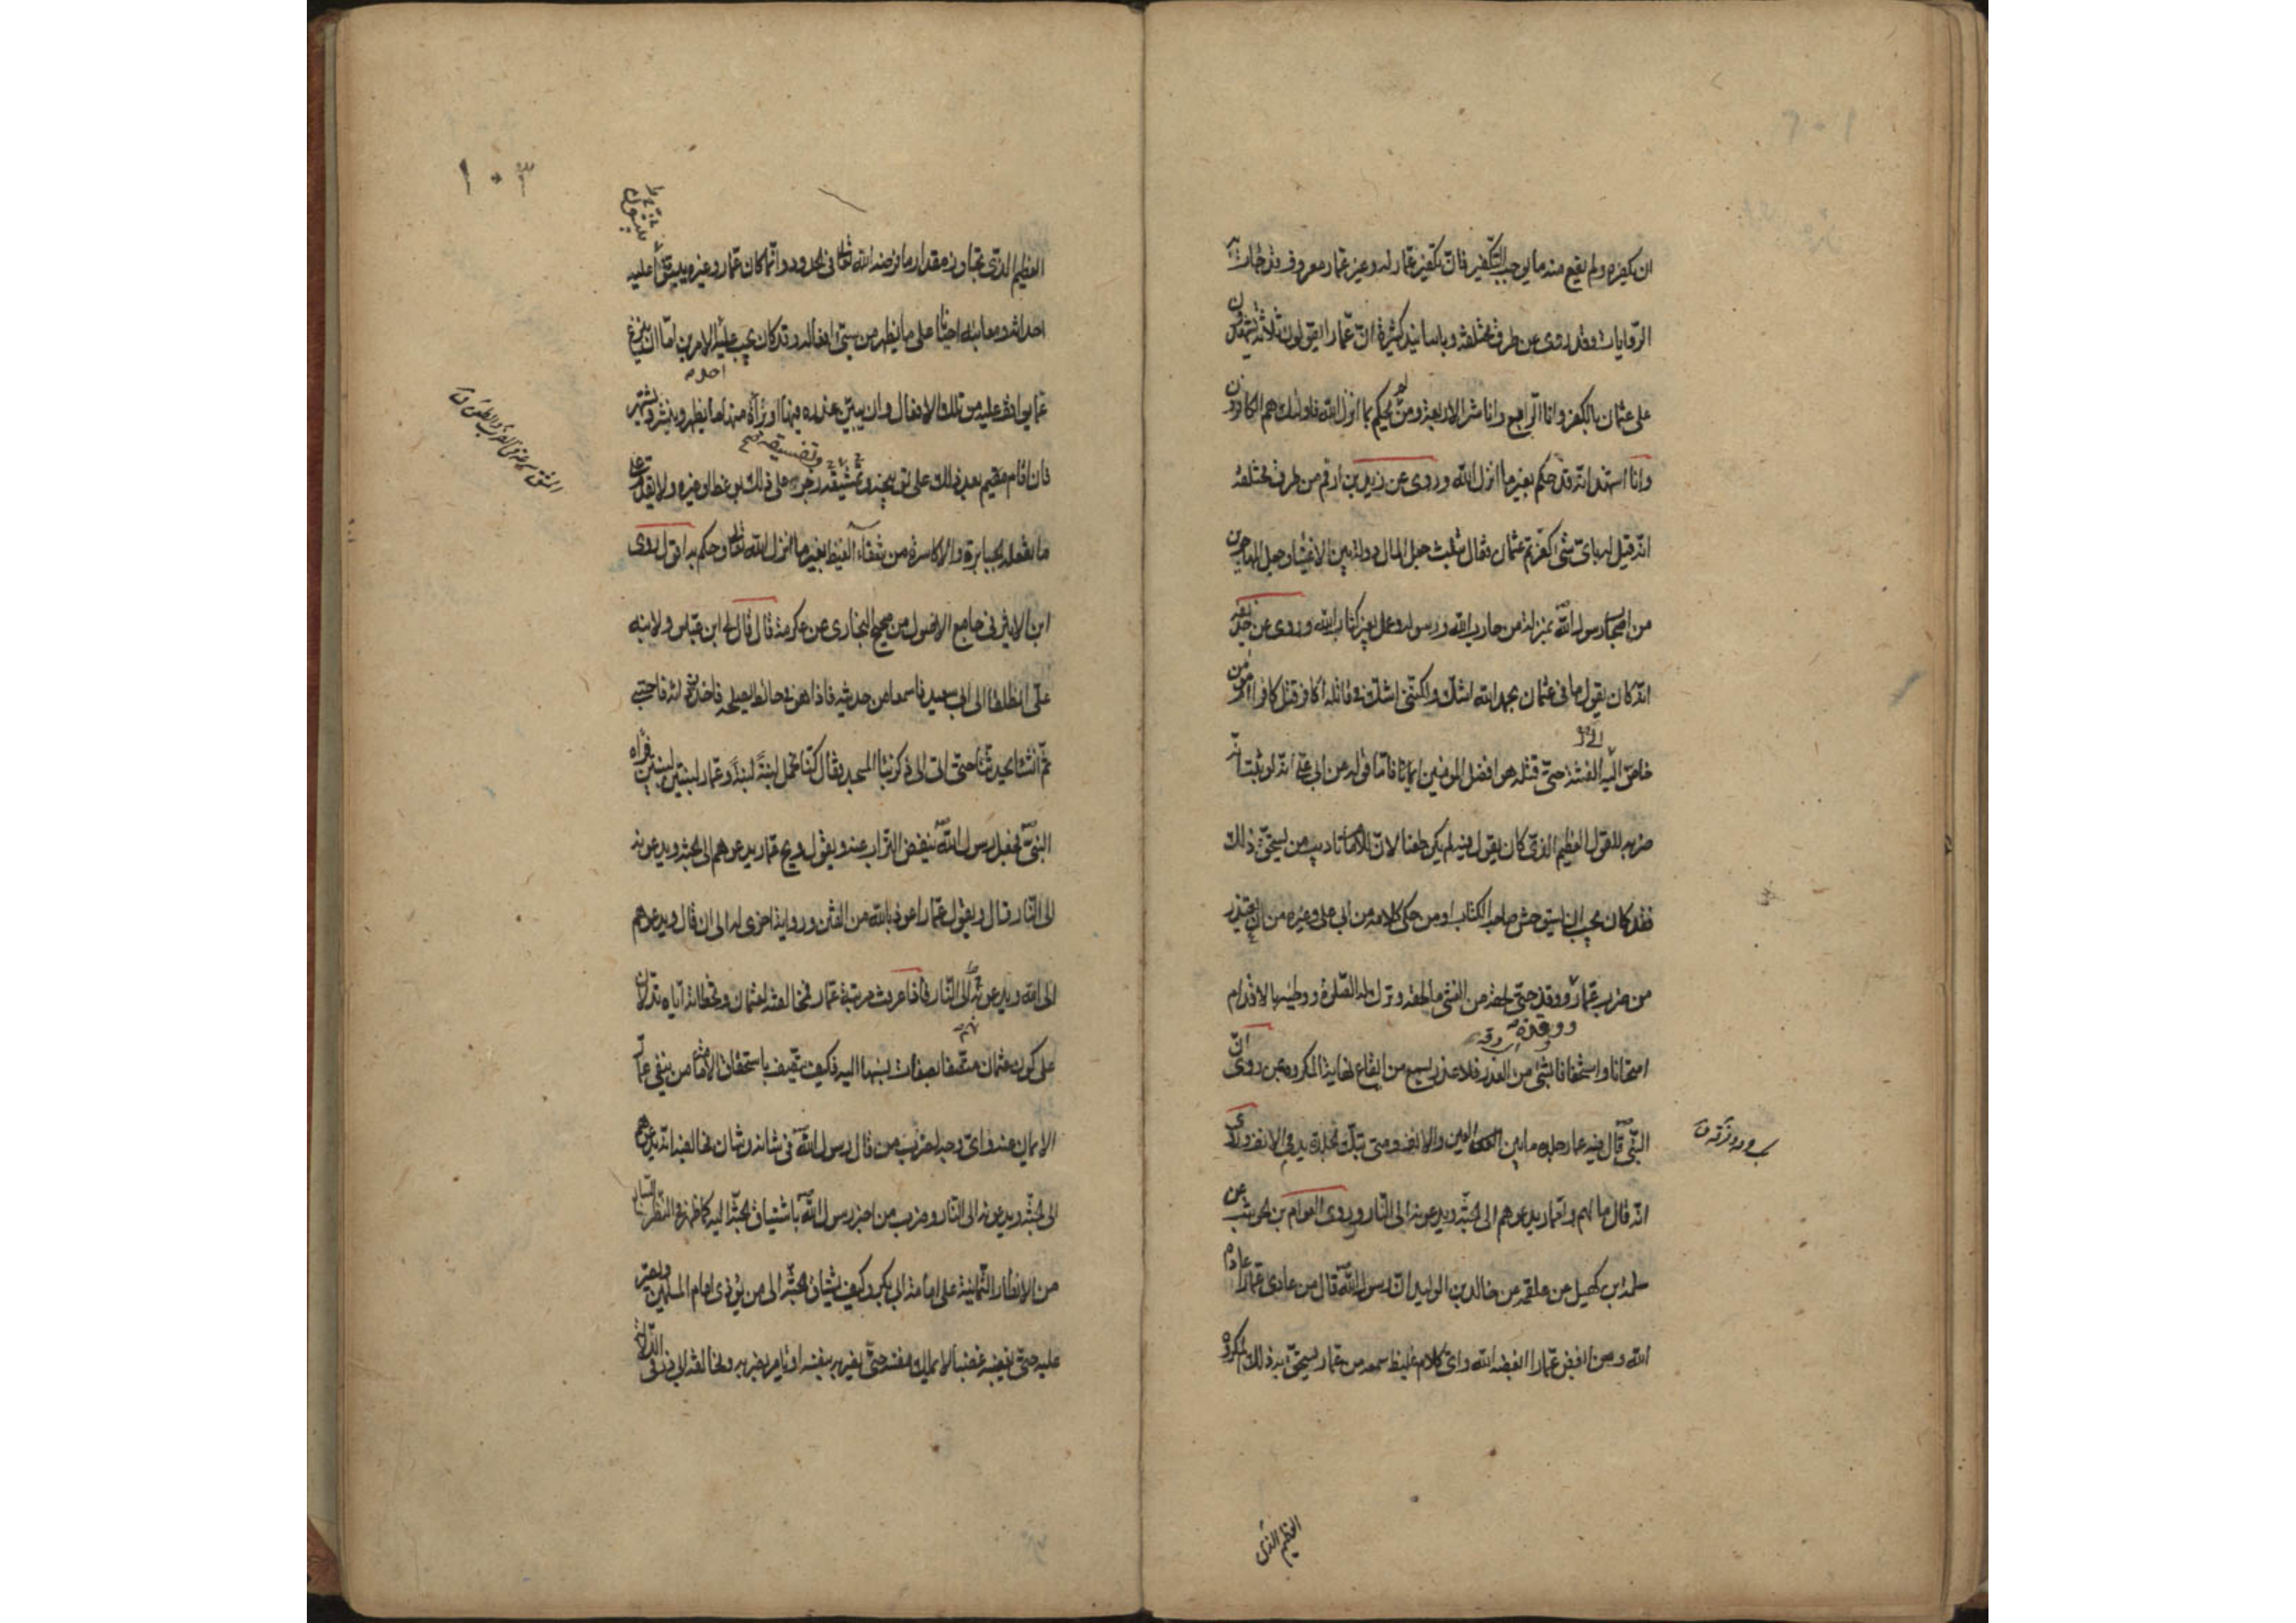 ان يكفره ولم يقع منه ما يوجب التكفير فان تكفير عمار له وغير عمار معروف قد جاءت به
الروايات وقد روى عن طرق مختلفة وباسانيد كثيرة ان عمارا يقول ثلاثة يشهدون
على عثمان بالكفر وانا الرابع وانا شر الاربعة ومن لم يحكم بما انزل الله فاولئك هم الكافرون
وانا اشهد انه قد حكم بغير ما انزل الله وروى عن زيد بن ارقم من طرق مختلفة
انه قيل له باى شئ اكفرتم عثمان فقال بثلث جعل المال دولة بين الاغنياء وجعل المهاجرين
من اصحاب رسول الله بمنزلة من حارب الله ورسوله وعمل بغير كتاب الله وروى عن حذيفة
انه كان يقول ما فى عثمان بحمد الله اشك ولكننى اشك فى قاتله أكافر قتل كافرا ام مؤمن
خاض اليه الفتنة حتى قتله هو افضل المؤمنين ايمانا فاما قوله عن ابى على انه لو ثبت انه
ضربه للقول العظيم الذى كان يقول فيه لم يكن طعنا لان للامام تاديب من يستحق ذلك
فقد كان يجب ان يستوحش صاحب الكتاب او من حكى كلامه من ابى على وغيره من ان يعتذر
من ضرب عمار ووقذه حتى لحقه من الغشى ما لحقه وترك له الصلوة ووطيه بالاقدام
ووقذه
امتهانا واستخفافا بشئ من العذر فلا عذر يسمع من ايقاع نهاية المكروه بمن روى ان
النبى قال فيه عمار جلدة ما بين العين والانف ومتى تنك الجلدة يدم الانف وروى
انه قال ما لهم ولعمار يدعوهم الى الجنة ويدعونه الى النار وروى العوام بن حوشب عن
سلمة بن كهيل عن علقمة عن خالد بن الوليد ان رسول الله قال من عادى عمارا عاداه
الله ومن ابغض عمارا ابغضه الله واى كلام غليظ سمعه من عمار يستحق به ذلك المكروه
العظيم الذى
١٠٣
العظيم الذى تجاوز مقدار ما فرضه الله تعالى فى الحدود وانما كان عمار وغيره يثبتون عليه
احداثه ومعايبه احيانا على ما يظهر من سيئ افعاله وقد كان يجب عليه احد الامرين اما ان ينزع
عما يوافق عليه من تلك الافعال وان يبين عذره فيها او براءته منها ما يظهر وينتشر ويشتهر
فان اقام مقيم بعد ذلك على توبيخه وتفسيقه زجره على ذلك بوعظ او غيره ولا يقدم على
ما يفعله الجبابرة والاكاسرة من شفاء الغيظ بغير ما انزل الله تعالى وحكم به اقول روى
ابن الاثير فى جامع الاصول من صحيح البخارى عن عكرمة قال قال لى ابن عباس ولابنه
على انطلقا الى ابى سعيد فاسمعا من حديثه فاذا هو فى حائط يصلحه فاخذ رداءه فاحتبى
ثم انشا يحدثنا حتى اتى الى ذكر بناء المسجد فقال كنا نحمل لبنة لبنة وعمار لبنتين لبنتين فراه
النبى فجعل رسول الله ينفض التراب عنه ويقول ويح عمار يدعوهم الى الجنة ويدعونه
الى النار قال ويقول عمار اعوذ بالله من الفتن ورواية اخرى له الى ان قال ويدعوهم
الى الله ويدعونه الى النار فاذا عرفت مرتبة عمار فمخالفته لعثمان وتخطئته اياه تدلان
على كون عثمان متصفا بصفات ينسبها اليه فكيف يتصف باستحقاق الامامة من ينفى عمار
الايمان عنه واى وجه لضرب من قال رسول الله فى شانه وشان مخالفيه انه يدعوهم
الى الجنة ويدعونه الى النار وضرب من اخبر رسول الله باشتياق الجنة اليه كما ظهر فى النظر
من الانظار الثمانية على امامة ابى بكر وكيف يشتاق الجنة الى من يؤذى امام المسلمين ويجترئ
عليه حتى يغضبه غضبا لا يملك نفسه حتى يضربه بنفسه او يامر بضربه ومخالفته لابى ذر